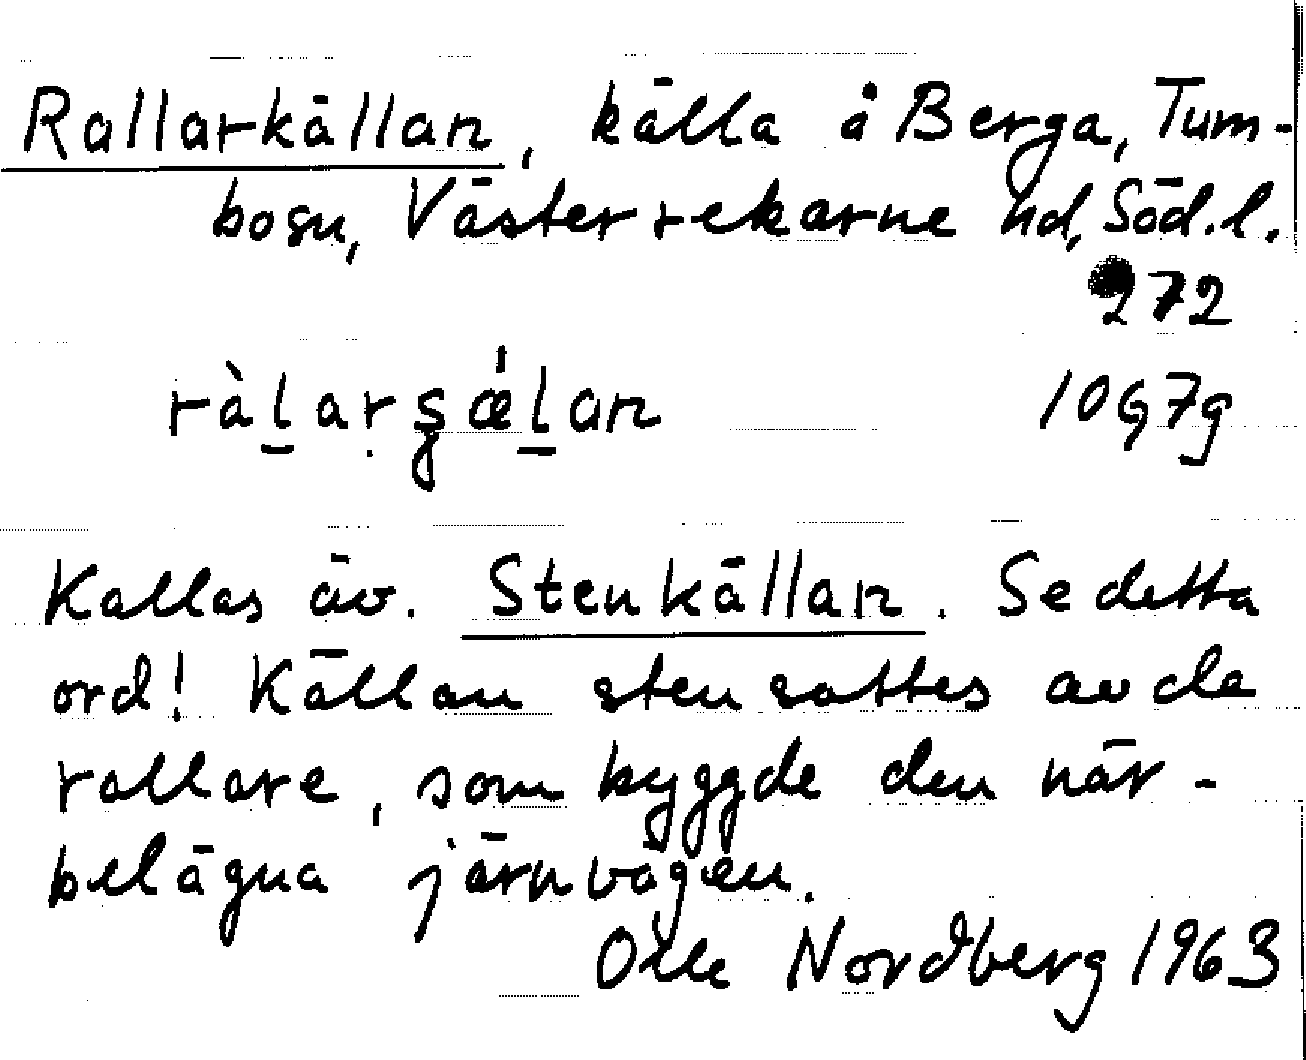 Rallarkällan, källa å Berga, Tum-
bosn, Västerrekarne hd, Söd.l.
272
ràḻaṛȿǽḻan 10G7g
Kallas äv. Stenkällan. Se detta
ord! Källan stensattes av de
rallare, som byggde den när-
belägna järnvägen.
Olle Nordberg 1963